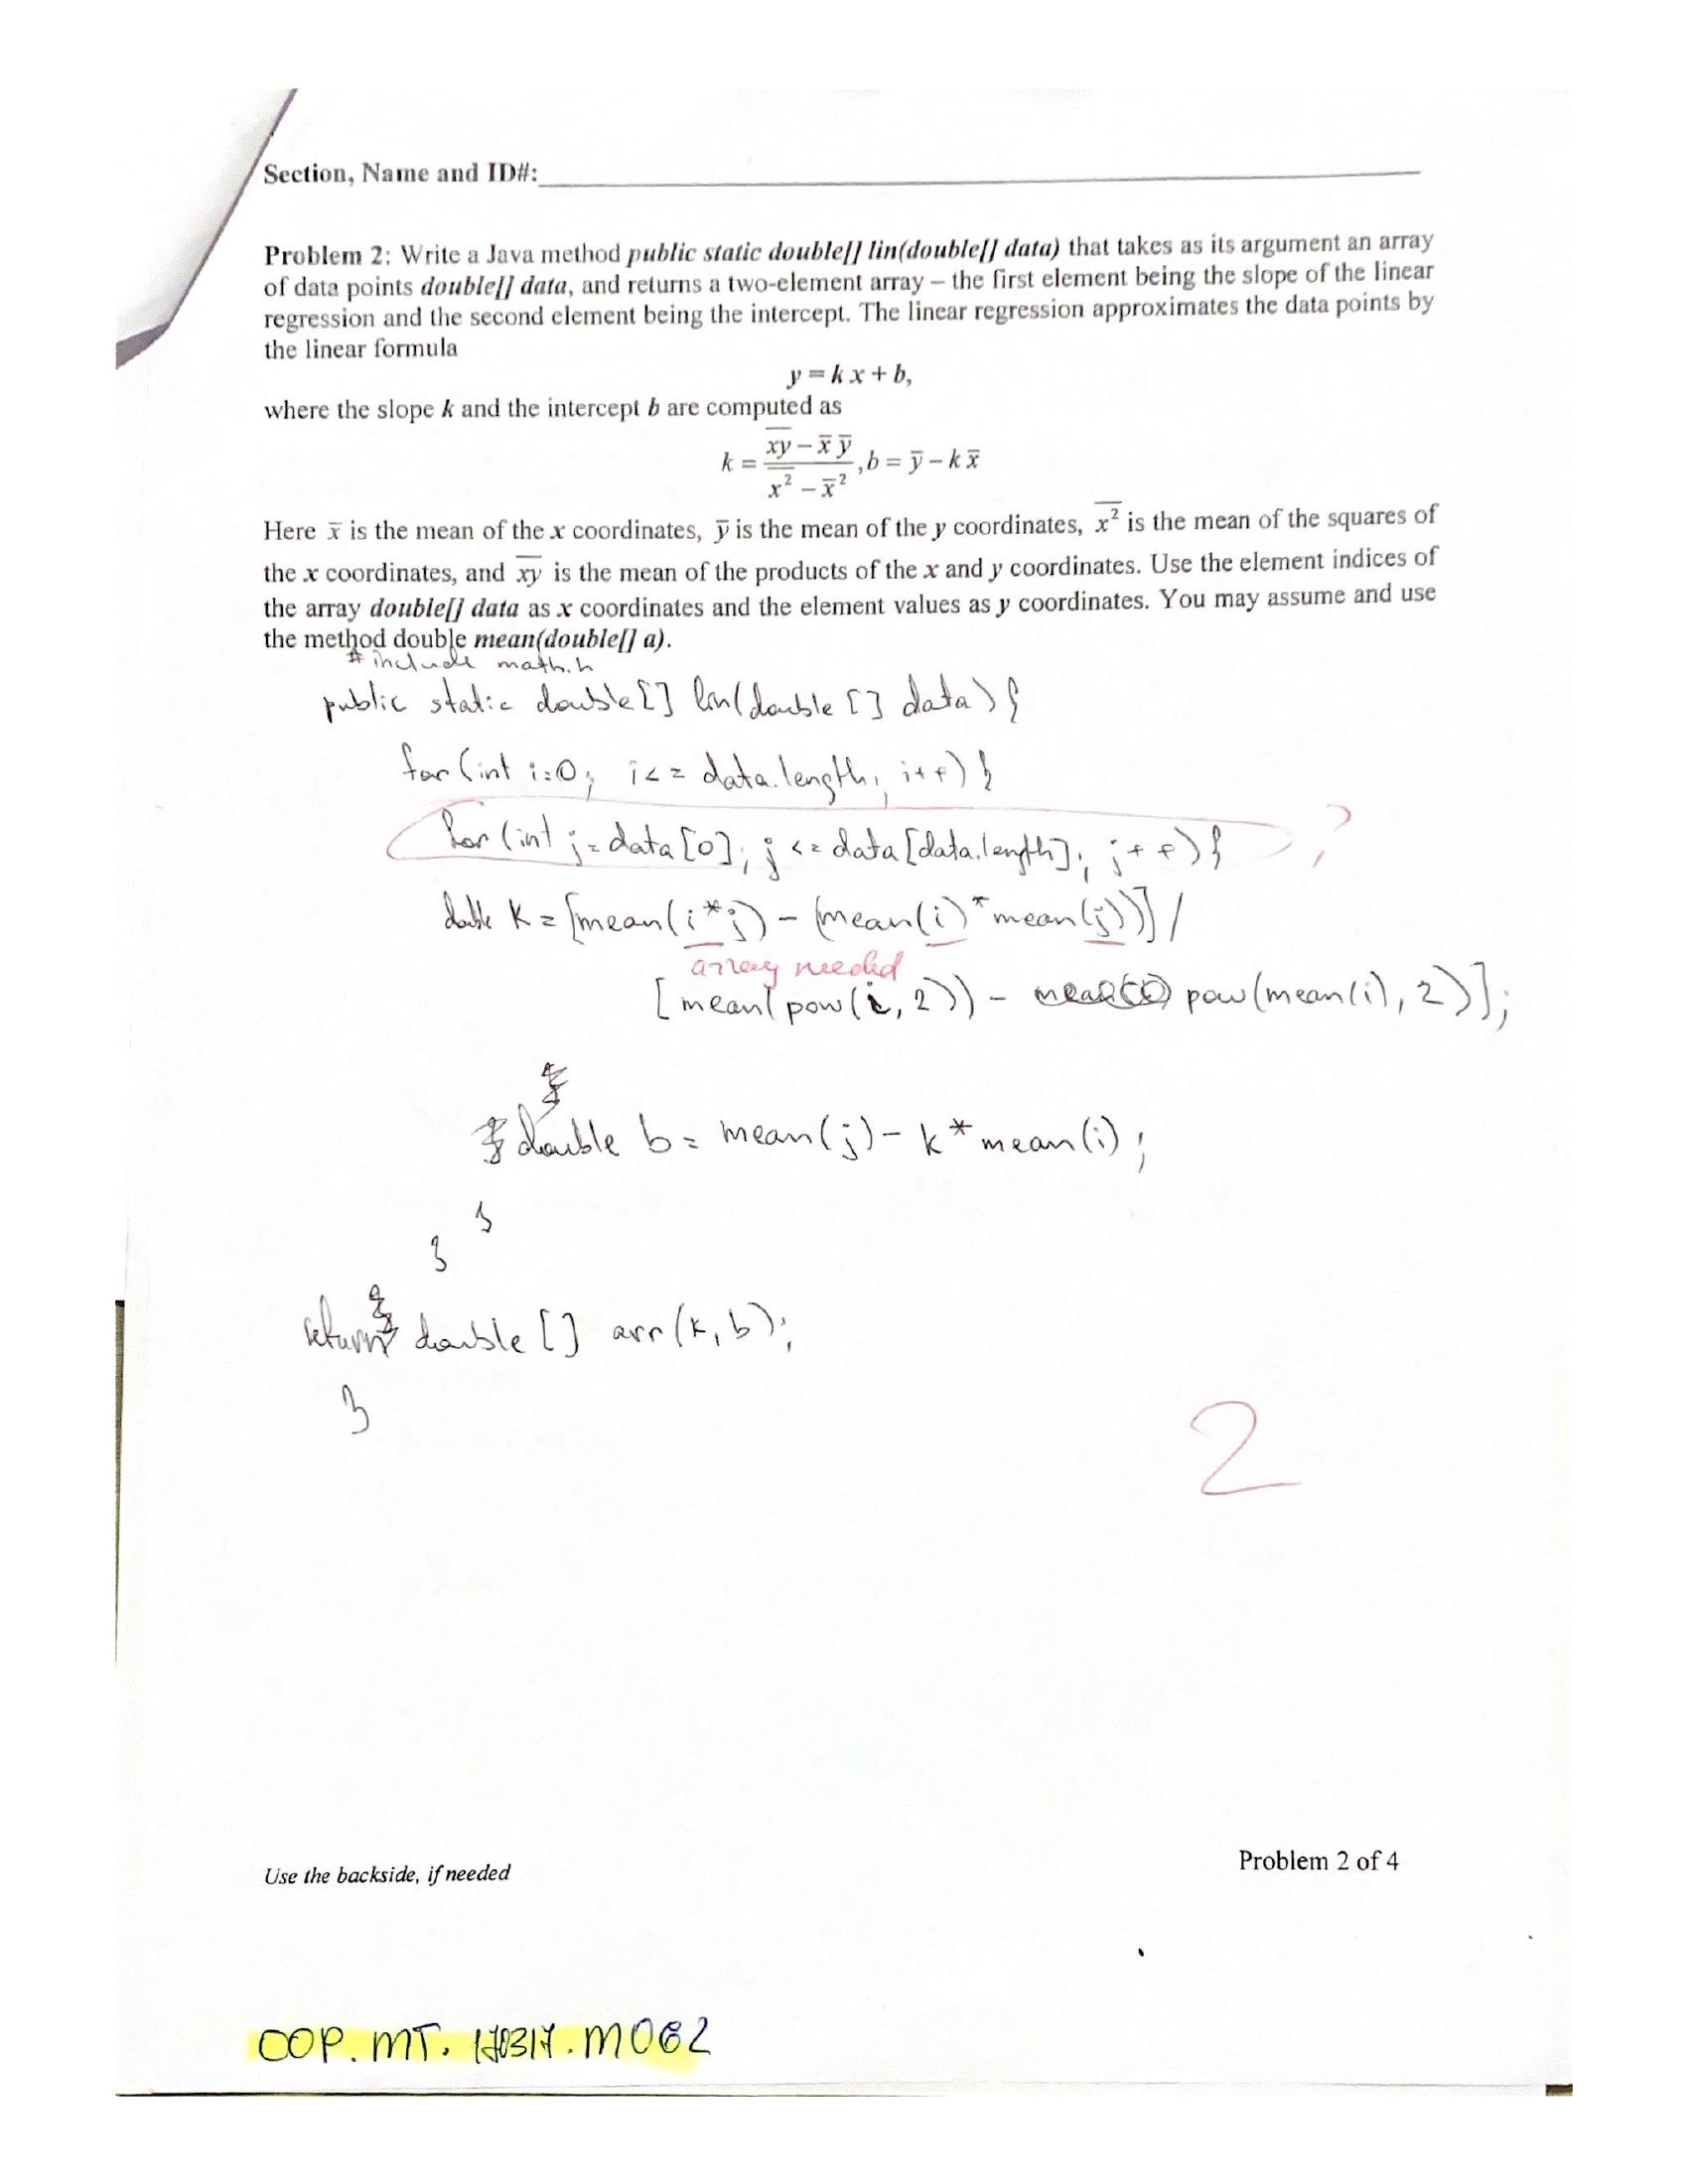 Section, Name and ID#:
Problem 2: Write a Java method public static double[] lin(double[] data) that takes as its argument an array
of data points double[] data, and returns a two-element array – the first element being the slope of the linear
regression and the second element being the intercept. The linear regression approximates the data points by
the linear formula
y = k x + b,
where the slope k and the intercept b are computed as
k = (x̅y̅ – x̄ ȳ) / (x̅²̅ – x̄²), b = ȳ – k x̄
Here x̄ is the mean of the x coordinates, ȳ is the mean of the y coordinates, x̅²̅ is the mean of the squares of
the x coordinates, and x̅y̅ is the mean of the products of the x and y coordinates. Use the element indices of
the array double[] data as x coordinates and the element values as y coordinates. You may assume and use
the method double mean(double[] a).
# include math.h
public static double[] lin(double[] data) {
for (int i=0; i<= data.length; i++) {
for (int j=data[0]; j<=data[data.length]; j++) { ?
double k = [mean(i*j) - (mean(i)*mean(j))] /
array needed
[mean(pow(i,2)) - pow(mean(i),2)];
double b = mean(j) - k*mean(i);
}
}
return double [] arr(k,b);
}
2
Use the backside, if needed
Problem 2 of 4
COP.MT.170317.M062